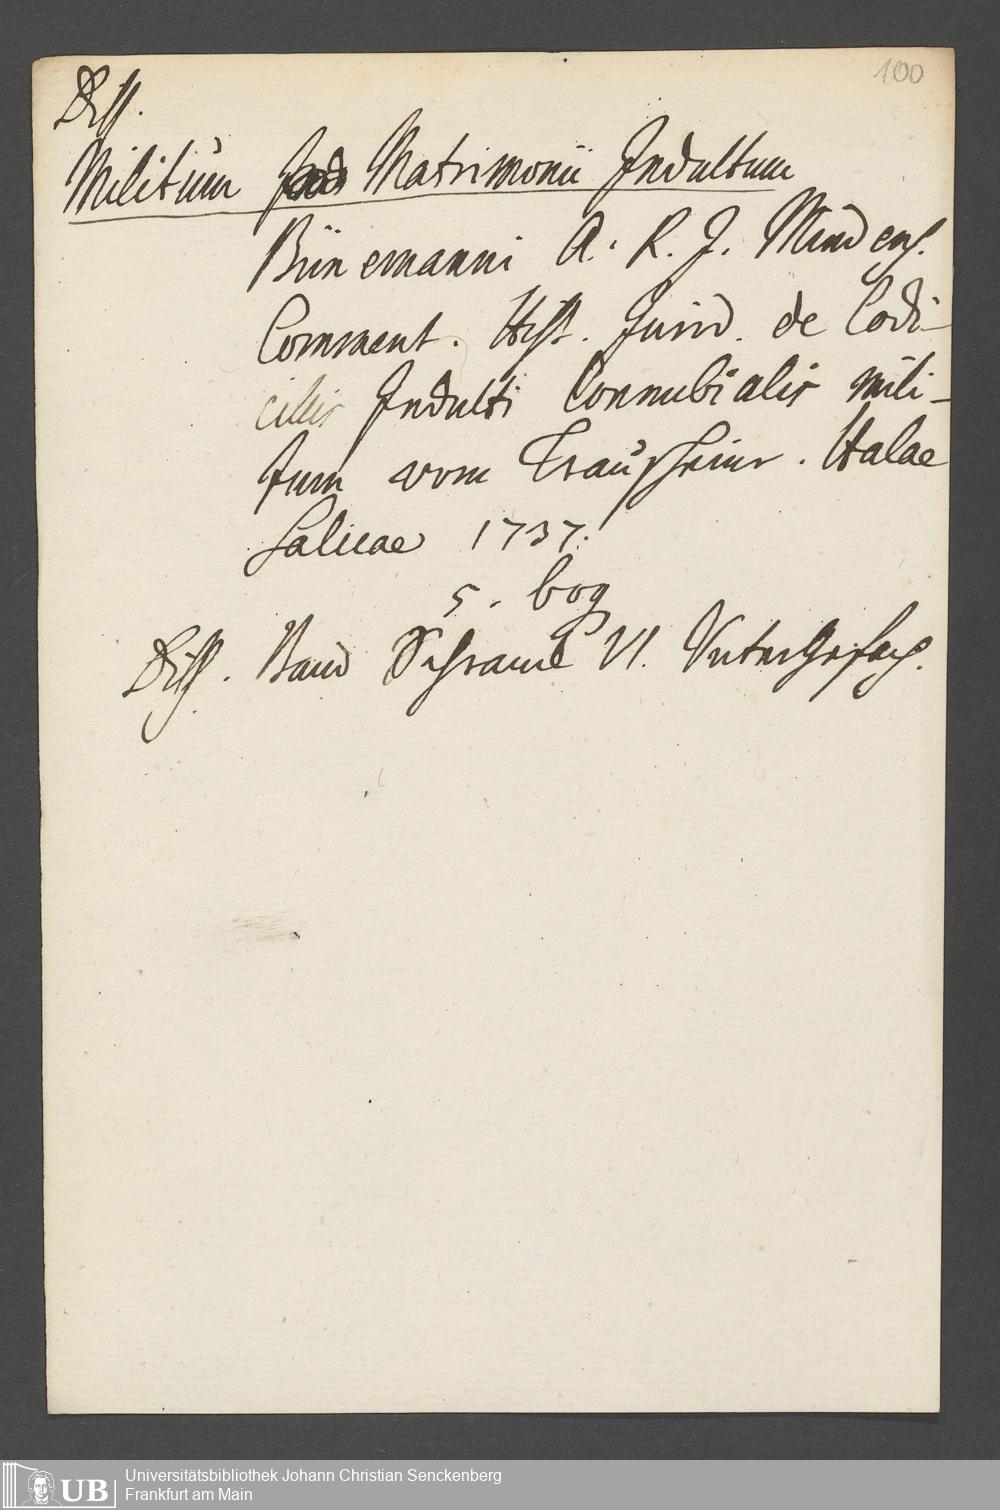 100
Diss.
Militum Matrimonii Indultum
Bünemanni A. R. J. Mindens.
Comment. Hist. Jurid. de Codi-
cillis Indulti Connubialis mili-
tum vom Trauschein. Halae
Salicae 1737.
5. bog
Diss. Band Schranck VI. Untergefach.
UB
Universitätsbibliothek Johann Christian Senckenberg
Frankfurt am Main